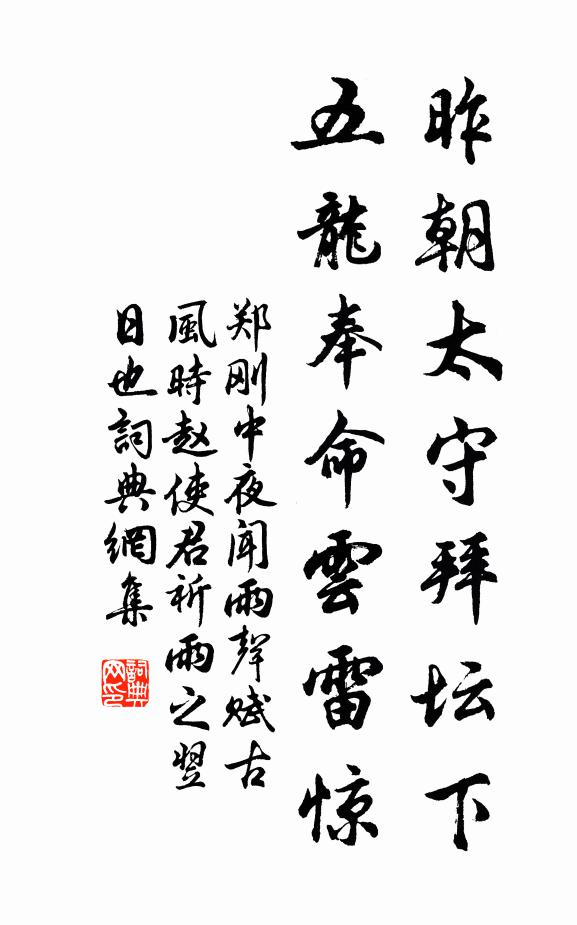 昨朝太守拜坛下
五龍奉命雲雷惊
郑刚中夜闻雨聲赋古
風時赵使君祈雨之翌
日也詞典網集
詞典网印